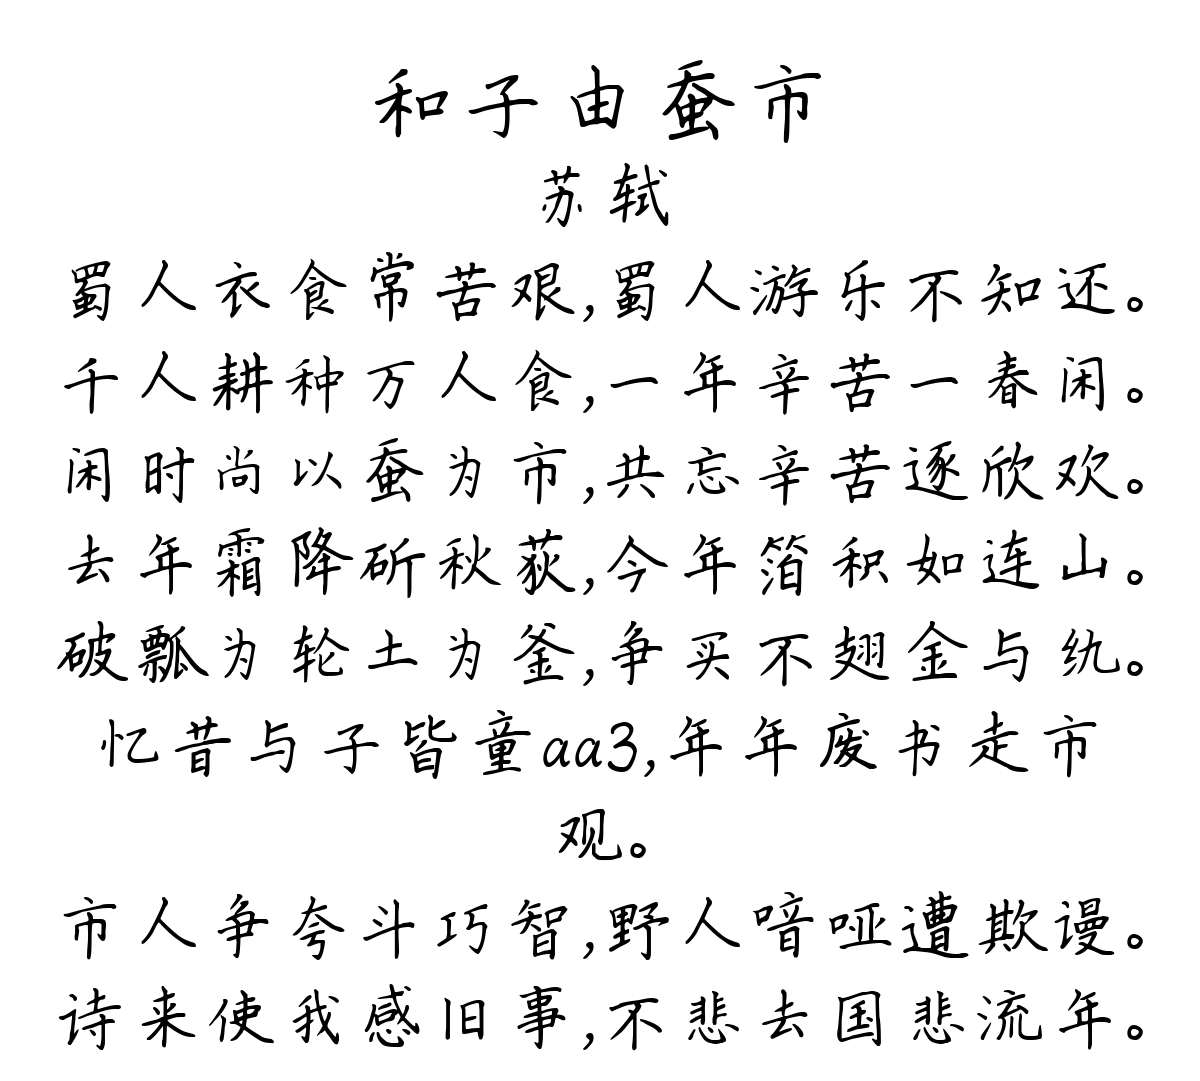 和子由蚕市
苏轼
蜀人衣食常苦艰,蜀人游乐不知还。
千人耕种万人食,一年辛苦一春闲。
闲时尚以蚕为市,共忘辛苦逐欣欢。
去年霜降斫秋荻,今年箔积如连山。
破瓢为轮土为釜,争买不翅金与纨。
忆昔与子皆童aa3,年年废书走市
观。
市人争夸斗巧智,野人喑哑遭欺谩。
诗来使我感旧事,不悲去国悲流年。